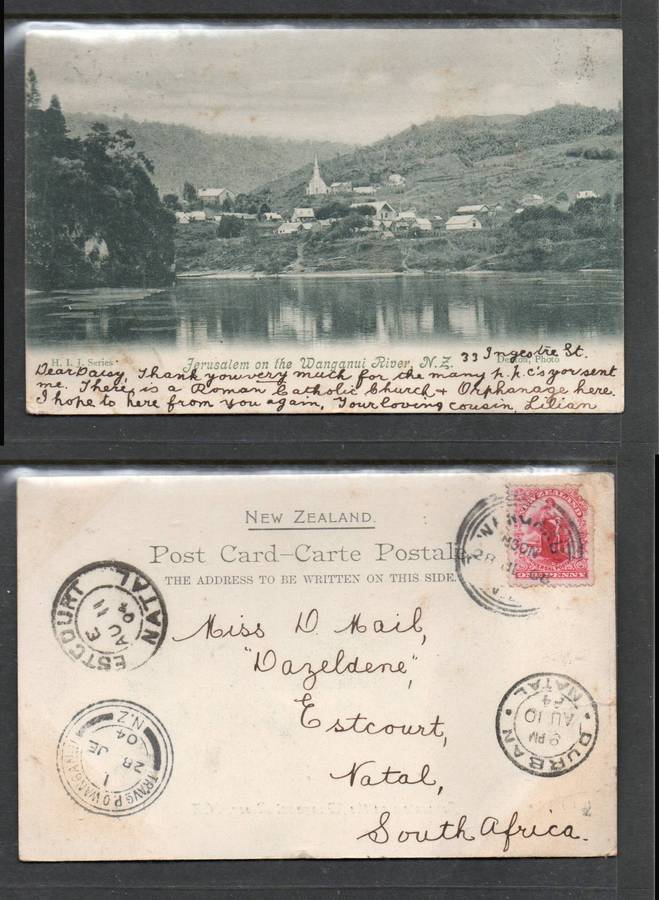 H. I. J. Series
Jerusalem on the Wanganui River, N.Z.
Denton, Photo
33 Ingestre St.
Dear Daisy, Thank you very much for the many p.p.c's you sent
me. There is a Roman Catholic Church + Orphanage here.
I hope to here from you again, Your loving cousin, Lilian
NEW ZEALAND.
Post Card–Carte Postale
THE ADDRESS TO BE WRITTEN ON THIS SIDE.
WANGANUI
NOON
28
NEW ZEALAND
ONE PENNY
ESTCOURT NATAL
E
AU 11
04
Miss D. Mail,
"Dazeldene",
Estcourt,
Natal,
South Africa.
DURBAN · NATAL ·
9 PM
AU 10
04
TRAVG P.O WANGANUI
N.Z
1
28 JE
04